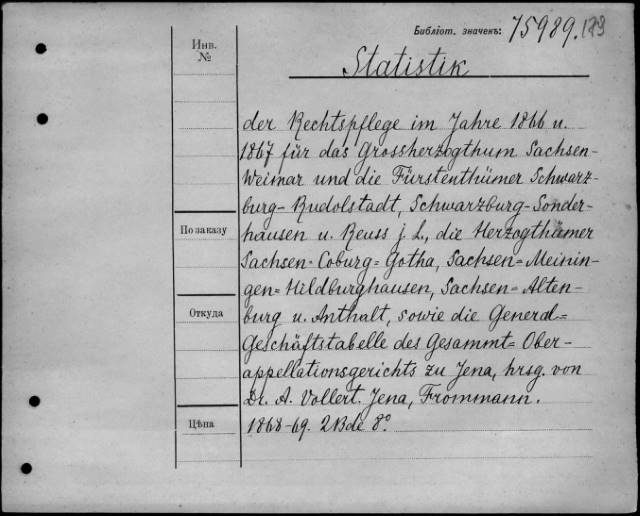 Библіот. значекъ: 75989. 123
Инв. №
Statistik
der Rechtspflege im Jahre 1866 u.
1867 für das Grossherzogthum Sachsen-
Weimar und die Fürstenthümer Schwarz-
burg-Rudolstadt, Schwarzburg-Sonder-
По заказу
hausen u. Reuss j. L., die Herzogthümer
Sachsen=Coburg=Gotha, Sachsen=Meinin-
gen=Hildburghausen, Sachsen=Alten-
Откуда
burg u. Anthalt, sowie die General=
Geschäftstabelle des Gesammt=Ober-
appellationsgerichts zu Jena, hrsg. von
Dr. A. Vollert. Jena, Frommann.
Цѣна
1868-69. 2 Bde 8°